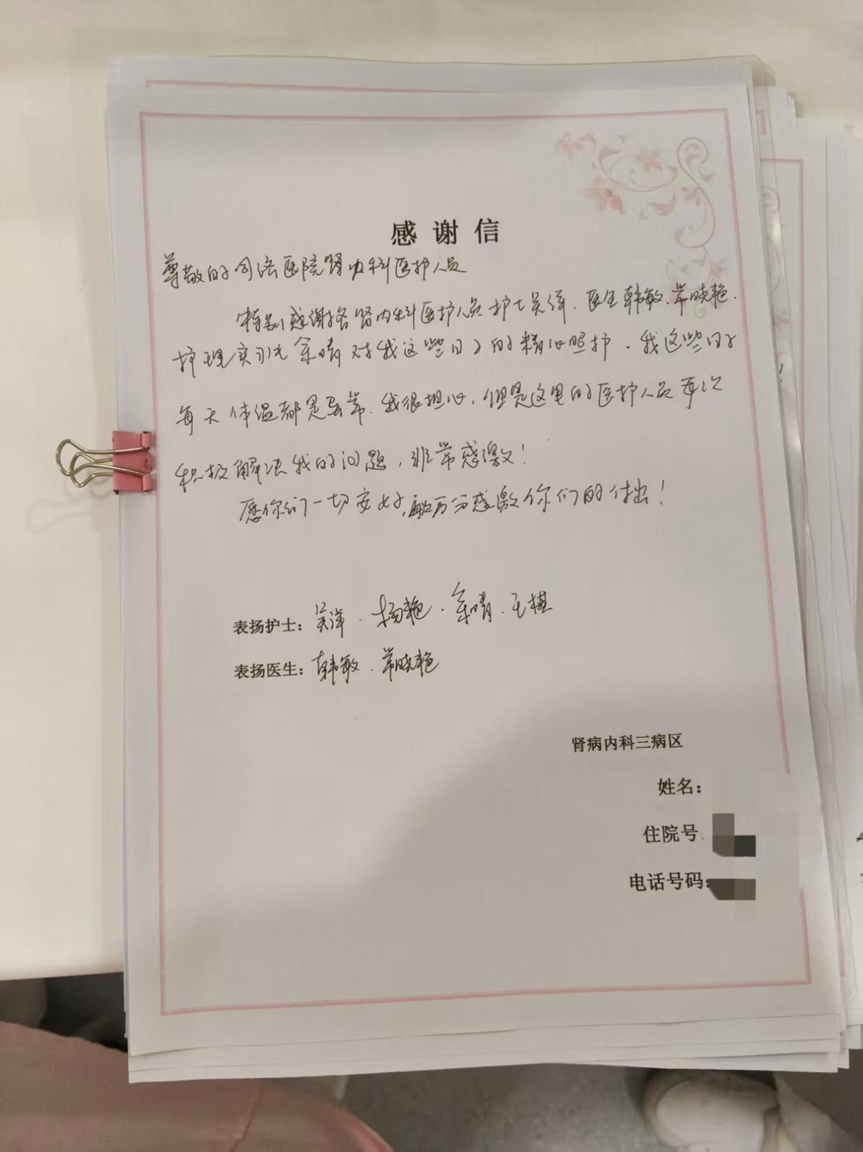 感谢信
尊敬的司法医院肾内科医护人员
特别感谢各肾内科医护人员 护士吴洋、医生韩敏、常晓艳、
护理实习生余晴对我这些日子的精心照护。我这些日子
每天体温都是异常,我很担心,但是这里的医护人员每次
积极解决我的问题,非常感激!
愿你们一切安好,万分感激你们的付出!
表扬护士:吴洋、杨艳、余晴、王棋
表扬医生:韩敏、常晓艳
肾病内科三病区
姓名:
住院号
电话号码: